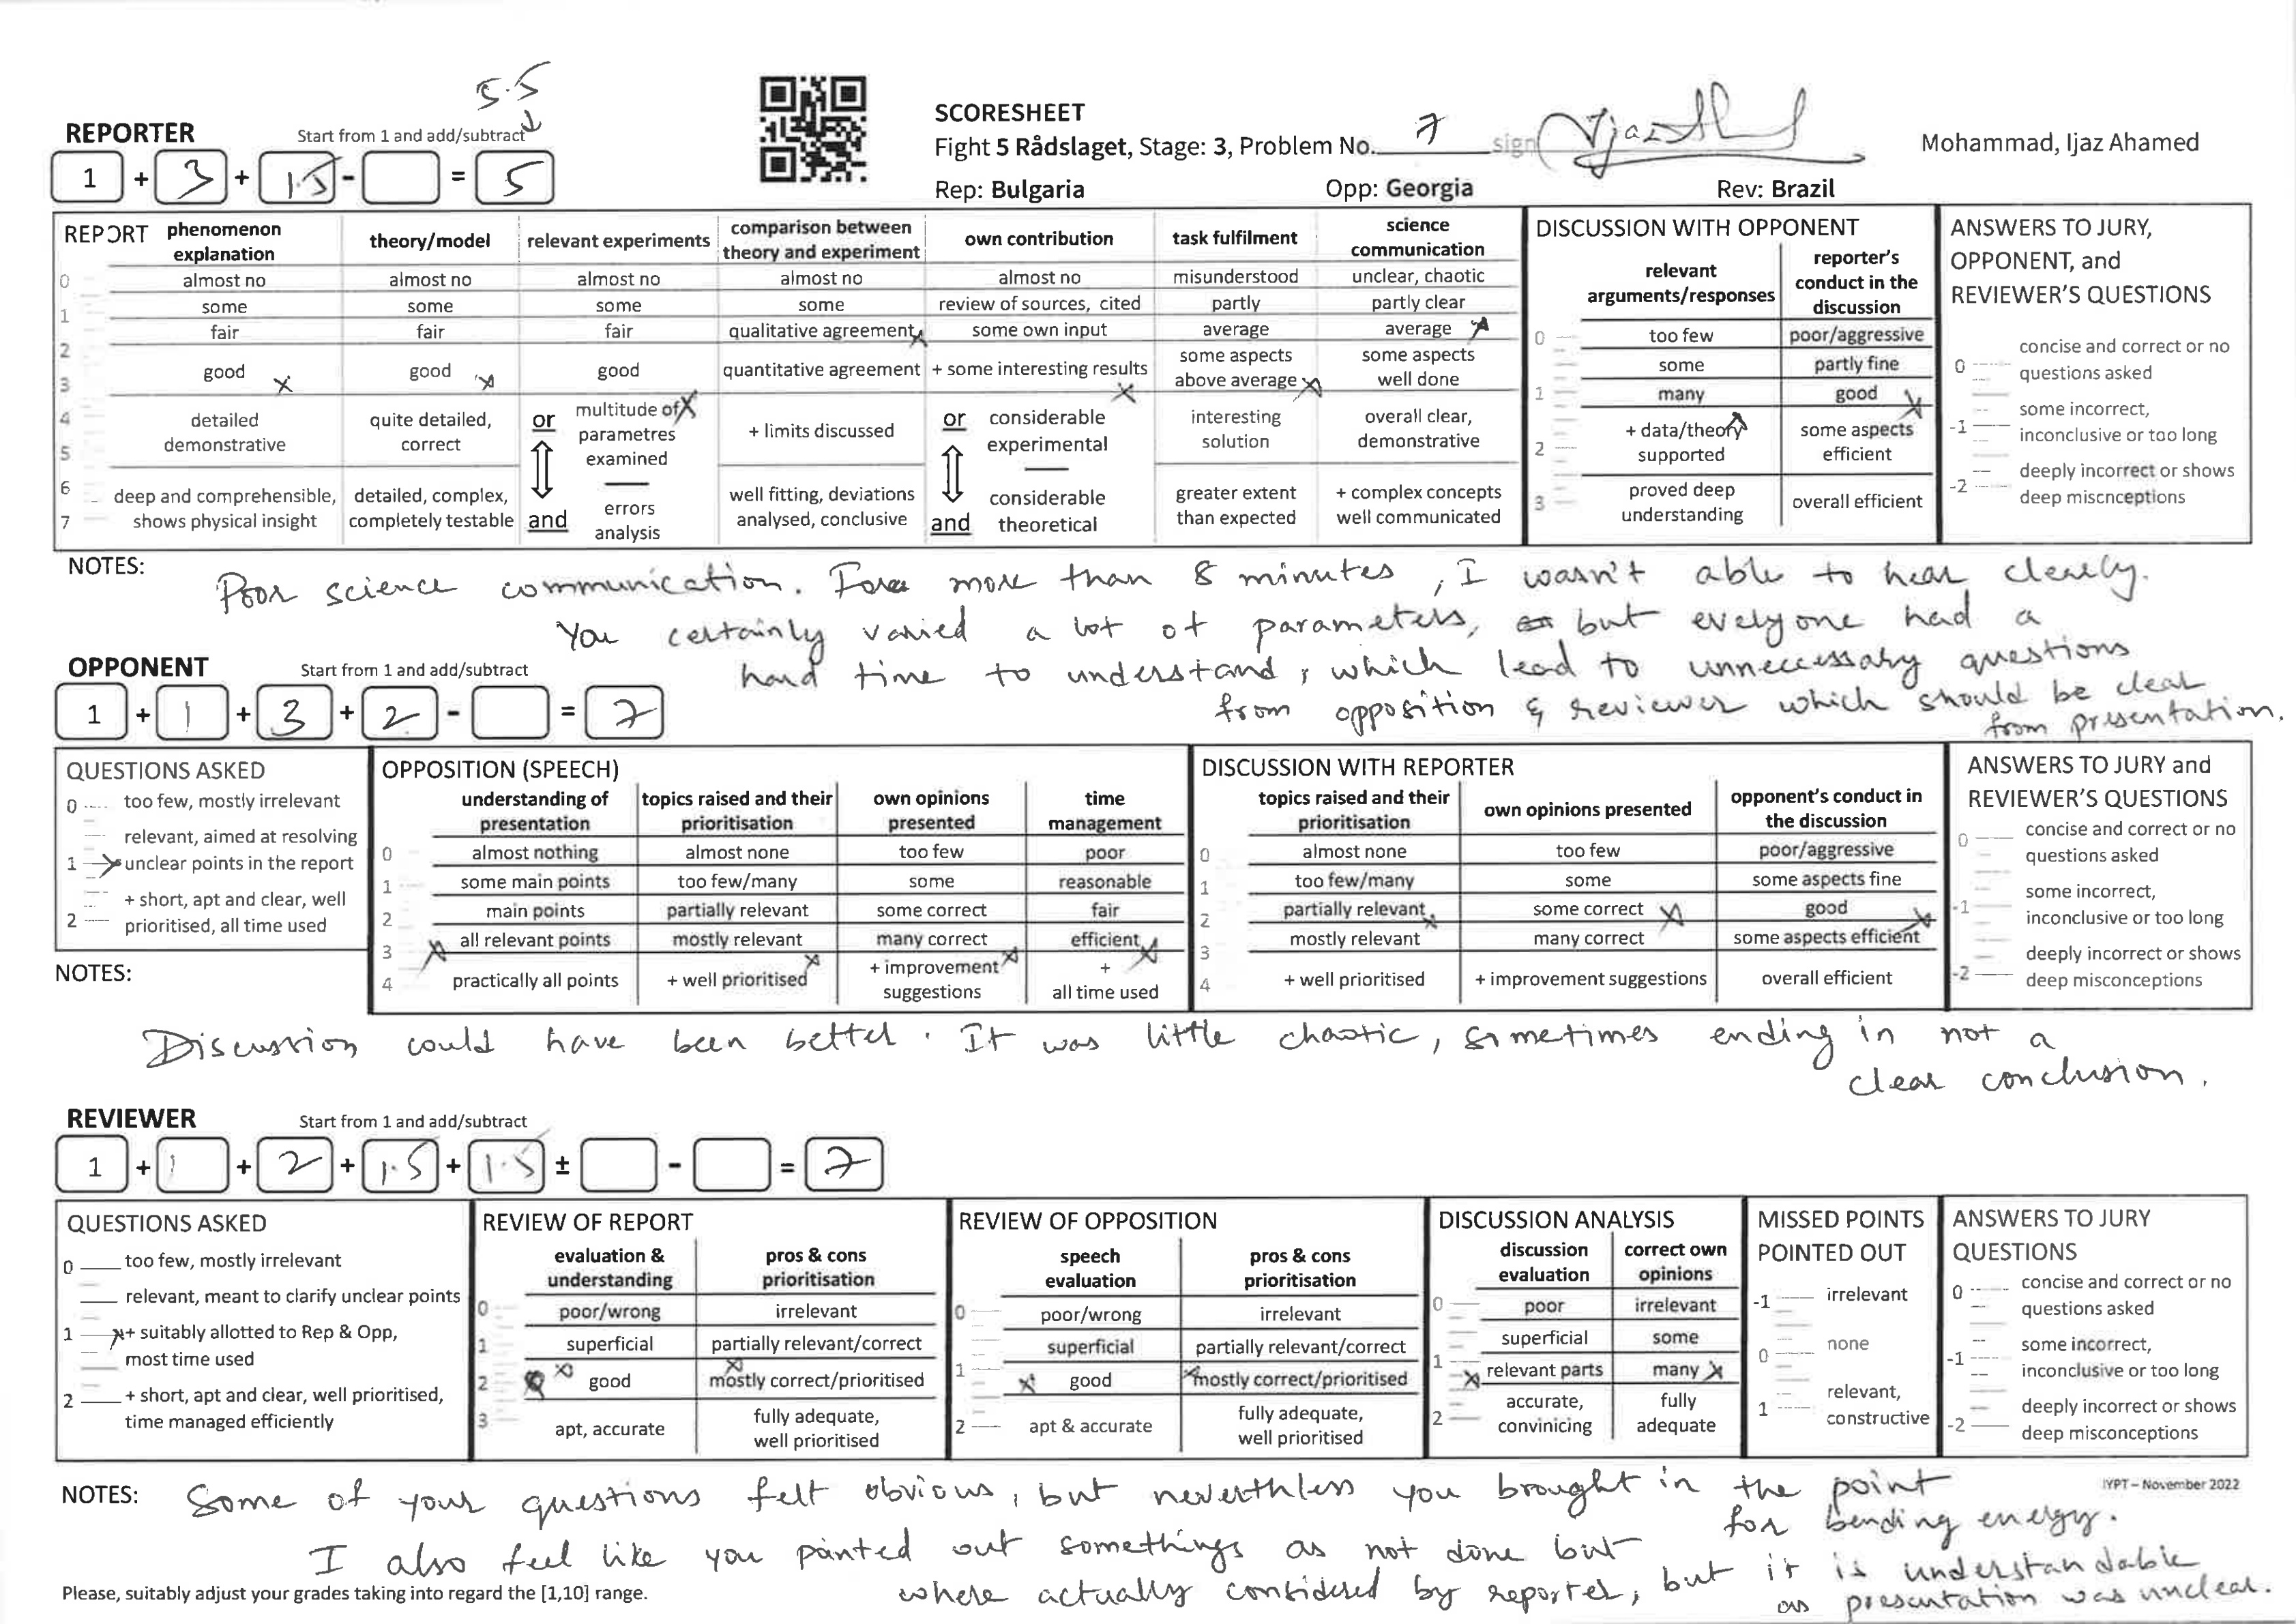 5.5
REPORTER Start from 1 and add/subtract
1 + 3 + 1.5 - = 5
SCORESHEET
Fight 5 Rådslaget, Stage: 3, Problem No. 7 sign Mohammad, Ijaz Ahamed
Rep: Bulgaria Opp: Georgia Rev: Brazil
REPORT phenomenon explanation theory/model relevant experiments comparison between theory and experiment own contribution task fulfilment science communication
0 almost no almost no almost no almost no almost no misunderstood unclear, chaotic
1 some some some some review of sources, cited partly partly clear
fair fair fair qualitative agreement some own input average average
2 good good good quantitative agreement + some interesting results some aspects above average some aspects well done
3
4 detailed demonstrative quite detailed, correct or multitude of parametres examined + limits discussed or considerable experimental interesting solution overall clear, demonstrative
5
6 deep and comprehensible, shows physical insight detailed, complex, completely testable and errors analysis well fitting, deviations analysed, conclusive and considerable theoretical greater extent than expected + complex concepts well communicated
7
DISCUSSION WITH OPPONENT
relevant arguments/responses reporter's conduct in the discussion
0 too few poor/aggressive
some partly fine
1 many good
+ data/theory supported some aspects efficient
2
3 proved deep understanding overall efficient
ANSWERS TO JURY, OPPONENT, and REVIEWER'S QUESTIONS
0 concise and correct or no questions asked
-1 some incorrect, inconclusive or too long
-2 deeply incorrect or shows deep miscnceptions
NOTES:
Poor science communication. For more than 8 minutes, I wasn't able to hear clearly.
You certainly varied a lot of parameters, but everyone had a
hard time to understand, which lead to unneccessary questions
from opposition & reviewer which should be clear
from presentation.
OPPONENT Start from 1 and add/subtract
1 + 1 + 3 + 2 - = 7
QUESTIONS ASKED
0 too few, mostly irrelevant
relevant, aimed at resolving
1 unclear points in the report
+ short, apt and clear, well
2 prioritised, all time used
OPPOSITION (SPEECH)
understanding of presentation topics raised and their prioritisation own opinions presented time management
0 almost nothing almost none too few poor
1 some main points too few/many some reasonable
2 main points partially relevant some correct fair
3 all relevant points mostly relevant many correct efficient
4 practically all points + well prioritised + improvement suggestions + all time used
DISCUSSION WITH REPORTER
topics raised and their prioritisation own opinions presented opponent's conduct in the discussion
0 almost none too few poor/aggressive
1 too few/many some some aspects fine
2 partially relevant some correct good
3 mostly relevant many correct some aspects efficient
4 + well prioritised + improvement suggestions overall efficient
ANSWERS TO JURY and REVIEWER'S QUESTIONS
0 concise and correct or no questions asked
-1 some incorrect, inconclusive or too long
-2 deeply incorrect or shows deep misconceptions
NOTES:
Discussion could have been better. It was little chaotic, sometimes ending in not a
clear conclusion.
REVIEWER Start from 1 and add/subtract
1 + 1 + 2 + 1.5 + 1.5 ± - = 7
QUESTIONS ASKED
0 too few, mostly irrelevant
relevant, meant to clarify unclear points
1 + suitably allotted to Rep & Opp,
most time used
2 + short, apt and clear, well prioritised,
time managed efficiently
REVIEW OF REPORT
evaluation & understanding pros & cons prioritisation
0 poor/wrong irrelevant
1 superficial partially relevant/correct
2 good mostly correct/prioritised
3 apt, accurate fully adequate, well prioritised
REVIEW OF OPPOSITION
speech evaluation pros & cons prioritisation
0 poor/wrong irrelevant
superficial partially relevant/correct
1 good mostly correct/prioritised
2 apt & accurate fully adequate, well prioritised
DISCUSSION ANALYSIS
discussion evaluation correct own opinions
0 poor irrelevant
superficial some
1 relevant parts many
2 accurate, convinicing fully adequate
MISSED POINTS POINTED OUT
-1 irrelevant
0 none
1 relevant, constructive
ANSWERS TO JURY QUESTIONS
0 concise and correct or no questions asked
-1 some incorrect, inconclusive or too long
-2 deeply incorrect or shows deep misconceptions
NOTES:
Some of your questions felt obvious, but neverthless you brought in the point
for bending energy.
IYPT – November 2022
I also feel like you pointed out somethings as not done but
where actually considered by reporter, but it is understandable
as presentation was unclear.
Please, suitably adjust your grades taking into regard the [1,10] range.